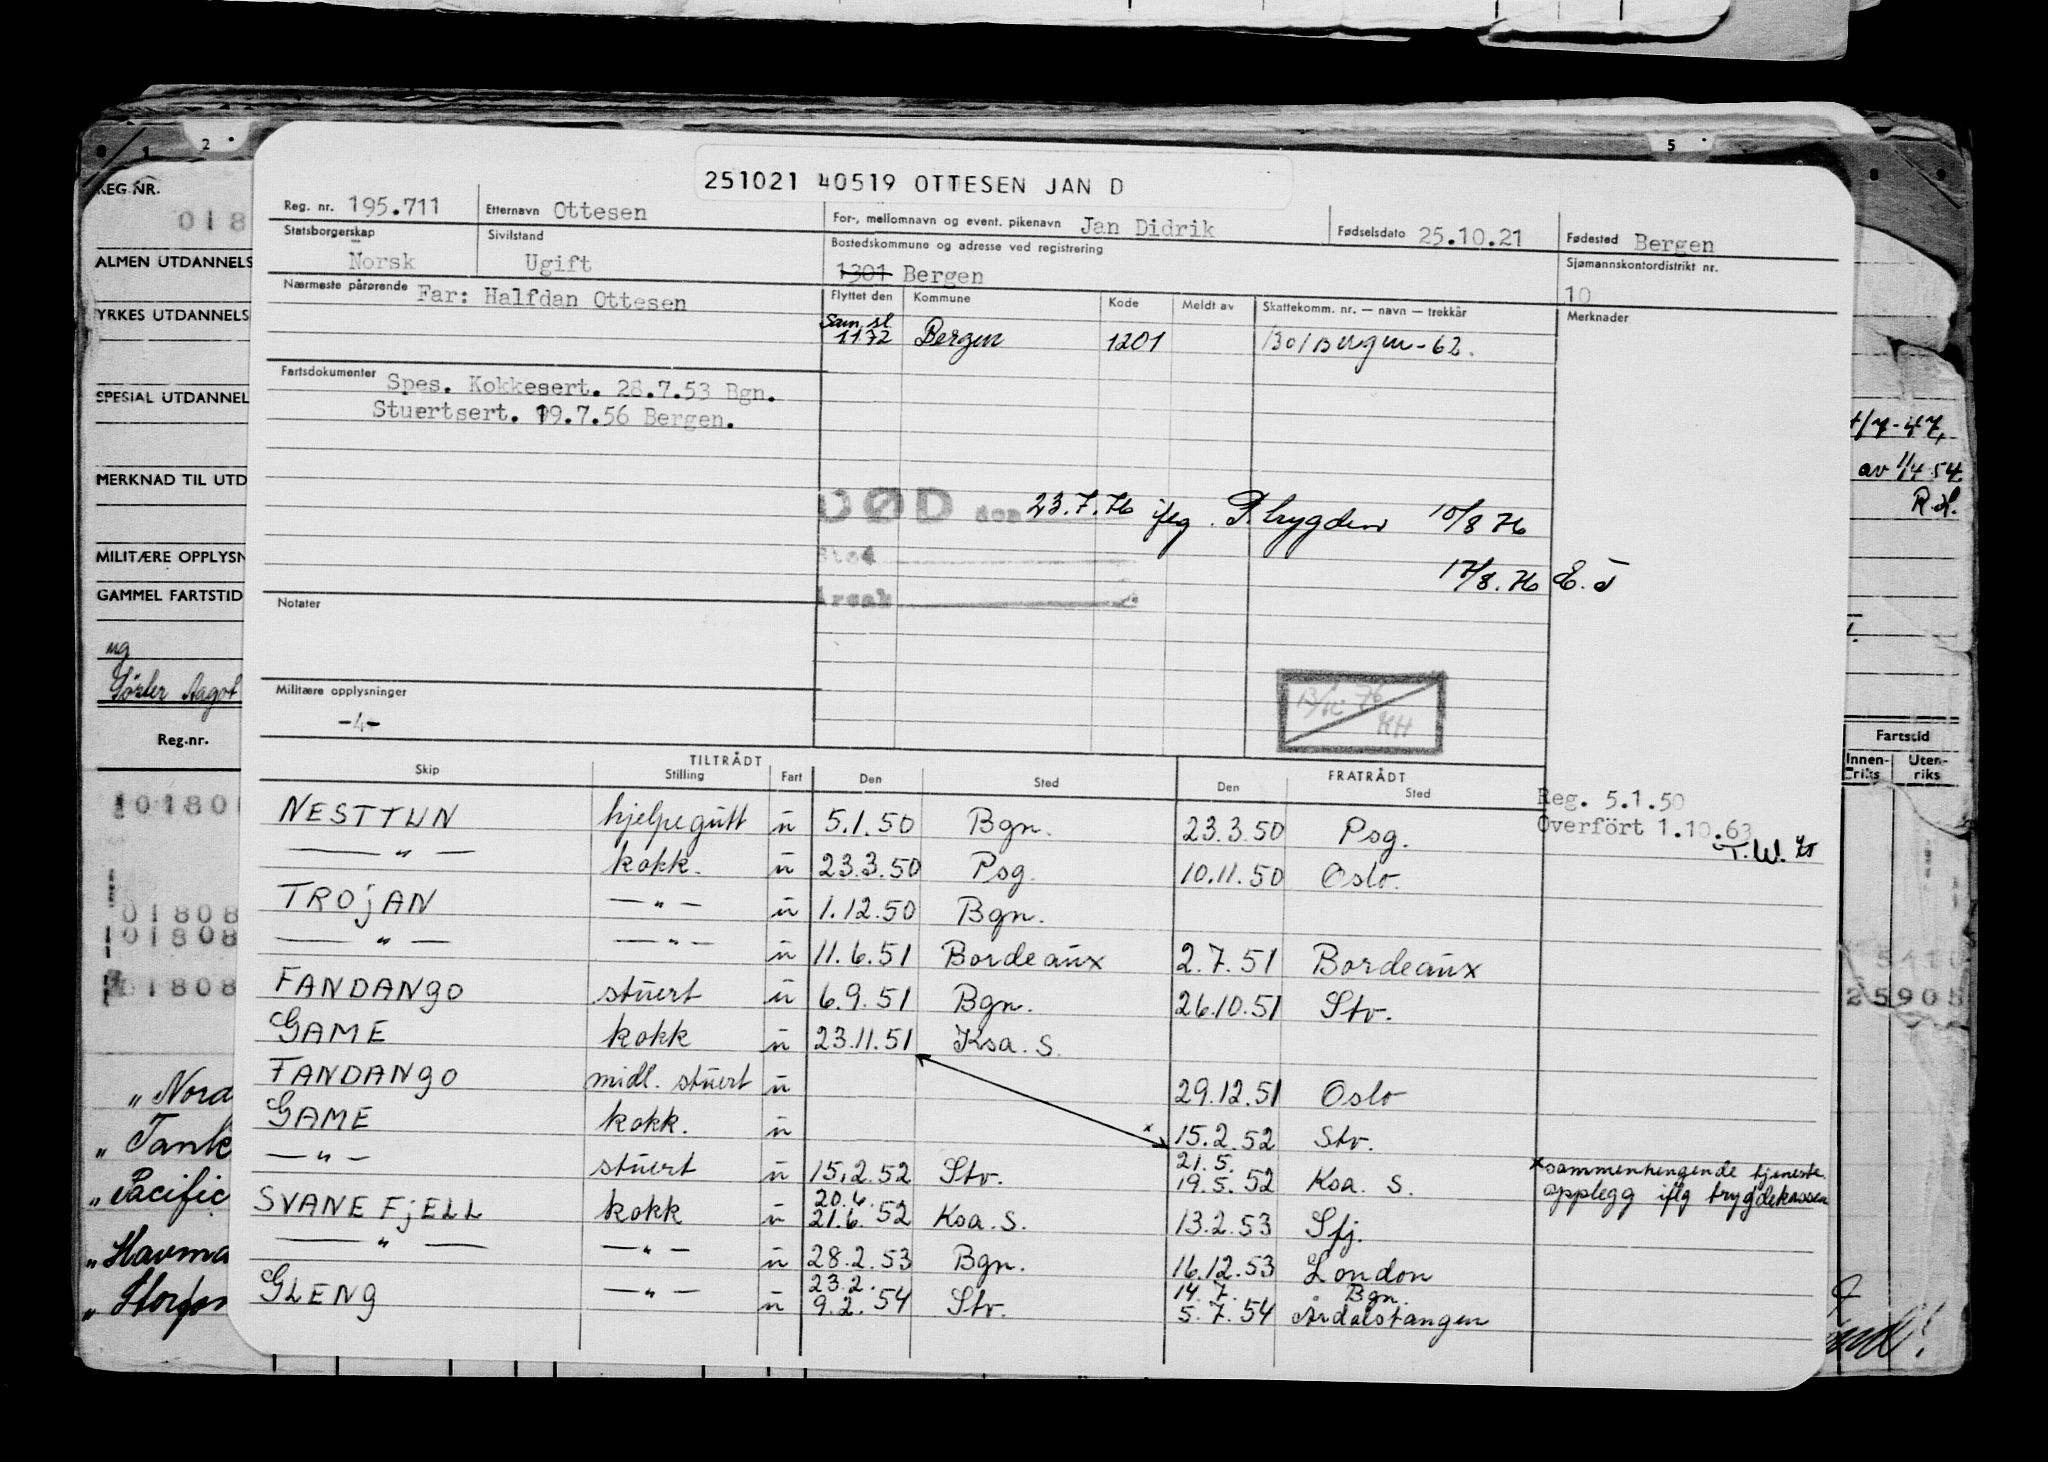 251021 40519 OTTESEN JAN D
Reg. nr. 195.711 Etternavn Ottesen For-, mellomnavn og event. pikenavn Jan Didrik Fødselsdato 25.10.21 Fødested Bergen
Statsborgerskap Norsk Sivilstand Ugift Bostedskommune og adresse ved registrering 1301 Bergen Sjømannskontordistrikt nr. 10
Nærmeste pårørende Far: Halfdan Ottesen Flyttet den Kommune Kode Meldt av Skattekomm. nr. — navn — trekkår Merknader
Sam.sl.
1172 Bergen 1201 1301 Bergen-62.
Fartsdokumenter Spes. Kokkesert. 28.7.53 Bgn.
Stuertsert. 19.7.56 Bergen.
DØD den 23.7.76 iflg. P.trygden 10/8 76
Sted
17/8.76 E.T
Årsak
Notater
Militære opplysninger
-4-
KH
TILTRÅDT FRATRÅDT
Skip Stilling Fart Den Sted Den Sted
Reg. 5.1.50
Overfört 1.10.63
T.W.
NESTTUN hjelpegutt u 5.1.50 Bgn. 23.3.50 Psg.
— " — kokk. u 23.3.50 Psg. 10.11.50 Oslo.
TROJAN — " — u 1.12.50 Bgn.
— " — — " — u 11.6.51 Bordeaux 2.7.51 Bordeaux
FANDANGO stuert u 6.9.51 Bgn. 26.10.51 Stv.
GAME kokk u 23.11.51 Ksa. S.
FANDANGO midl. stuert u 29.12.51 Oslo
GAME kokk. u x 15.2.52 Stv.
21.5.
— " — stuert u 15.2.52 Stv. 19.5.52 Ksa. S. x sammenhengende tjeneste
opplegg iflg trygdekassen
20.6.
SVANEFJELL kokk u 21.6.52 Ksa. S. 13.2.53 Sfj.
— " — — " — u 28.2.53 Bgn. 16.12.53 London
23.2. 14.7. Bgn.
GLENG — " — u 9.2.54 Stv. 5.7.54 Årdalstangen
1 2 5
REG.NR.
018
ALMEN UTDANNELS
YRKES UTDANNELS
SPESIAL UTDANNEL
MERKNAD TIL UTD
MILITÆRE OPPLYSN
GAMMEL FARTSTID
ug
Aagot
Reg.-nr.
01808
01808
01808
01808
„ Nord
„ Tank
„ Pacific
„ Havma
7-47,
av 1/4 54
R.d.
Fartstid
Innen-
riks Uten-
riks
25905